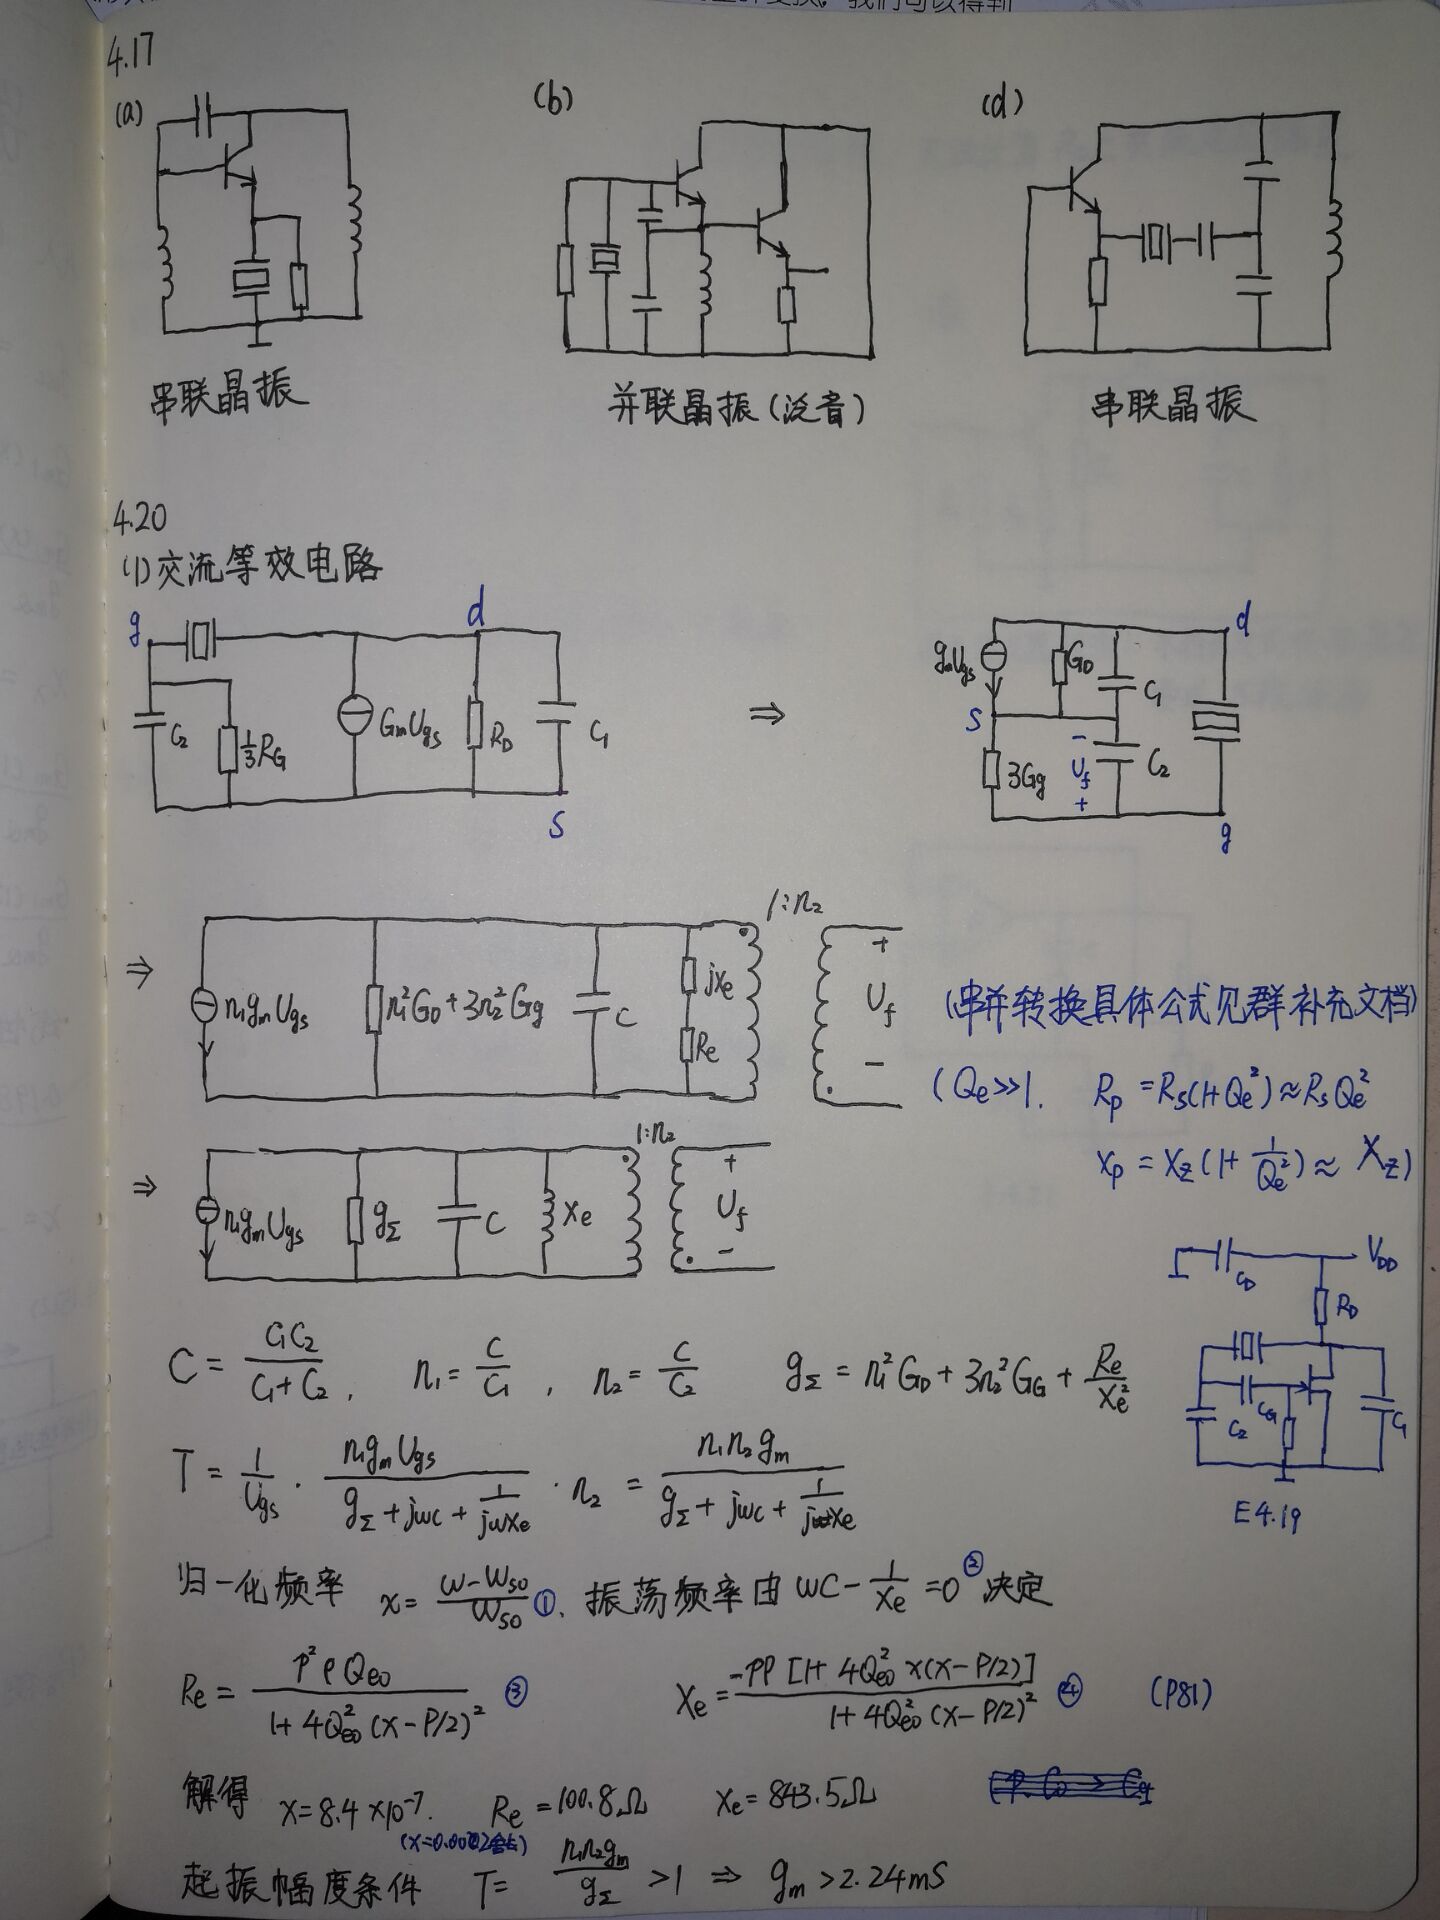 我们可以得到
4.17
(a)
(b)
(d)
串联晶振
并联晶振(泛音)
串联晶振
4.20
(1)交流等效电路
g
d
C2
1/3 RG
GmUgs
RD
C1
S
⇒
d
gmUgs
GD
C1
S
3Gg
- Uf +
C2
g
⇒
n1gmUgs
n1²GD+3n2²Gg
C
jXe
Re
1:n2
+ Uf -
(串并转换具体公式见群补充文档)
(Qe≫1. Rp = Rs(1+Qe²)≈RsQe²
Xp = Xz(1+1/Qe²)≈ Xz)
⇒
n1gmUgs
gΣ
C
Xe
1:n2
+ Uf -
CD
VDD
RD
CG
C2
C1
E4.19
C = C1C2/(C1+C2), n1 = C/C1, n2 = C/C2 gΣ = n1²GD+3n2²GG+Re/Xe²
T = 1/Ugs · n1gmUgs/(gΣ+jωC+1/jωXe) · n2 = n1n2gm/(gΣ+jωC+1/jXe)
归一化频率 x = (ω-ωso)/ωso ①. 振荡频率由 ωC-1/Xe=0 ② 决定
Re = p²ρQeo/(1+4Qeo²(x-P/2)²) ③ Xe = -pρ[1+4Qeo²x(x-P/2)]/(1+4Qeo²(x-P/2)²) ④ (P81)
解得 x=8.4×10⁻⁷. Re=100.8Ω Xe=843.5Ω
起振幅度条件 T= n1n2gm/gΣ >1 ⇒ gm>2.24mS